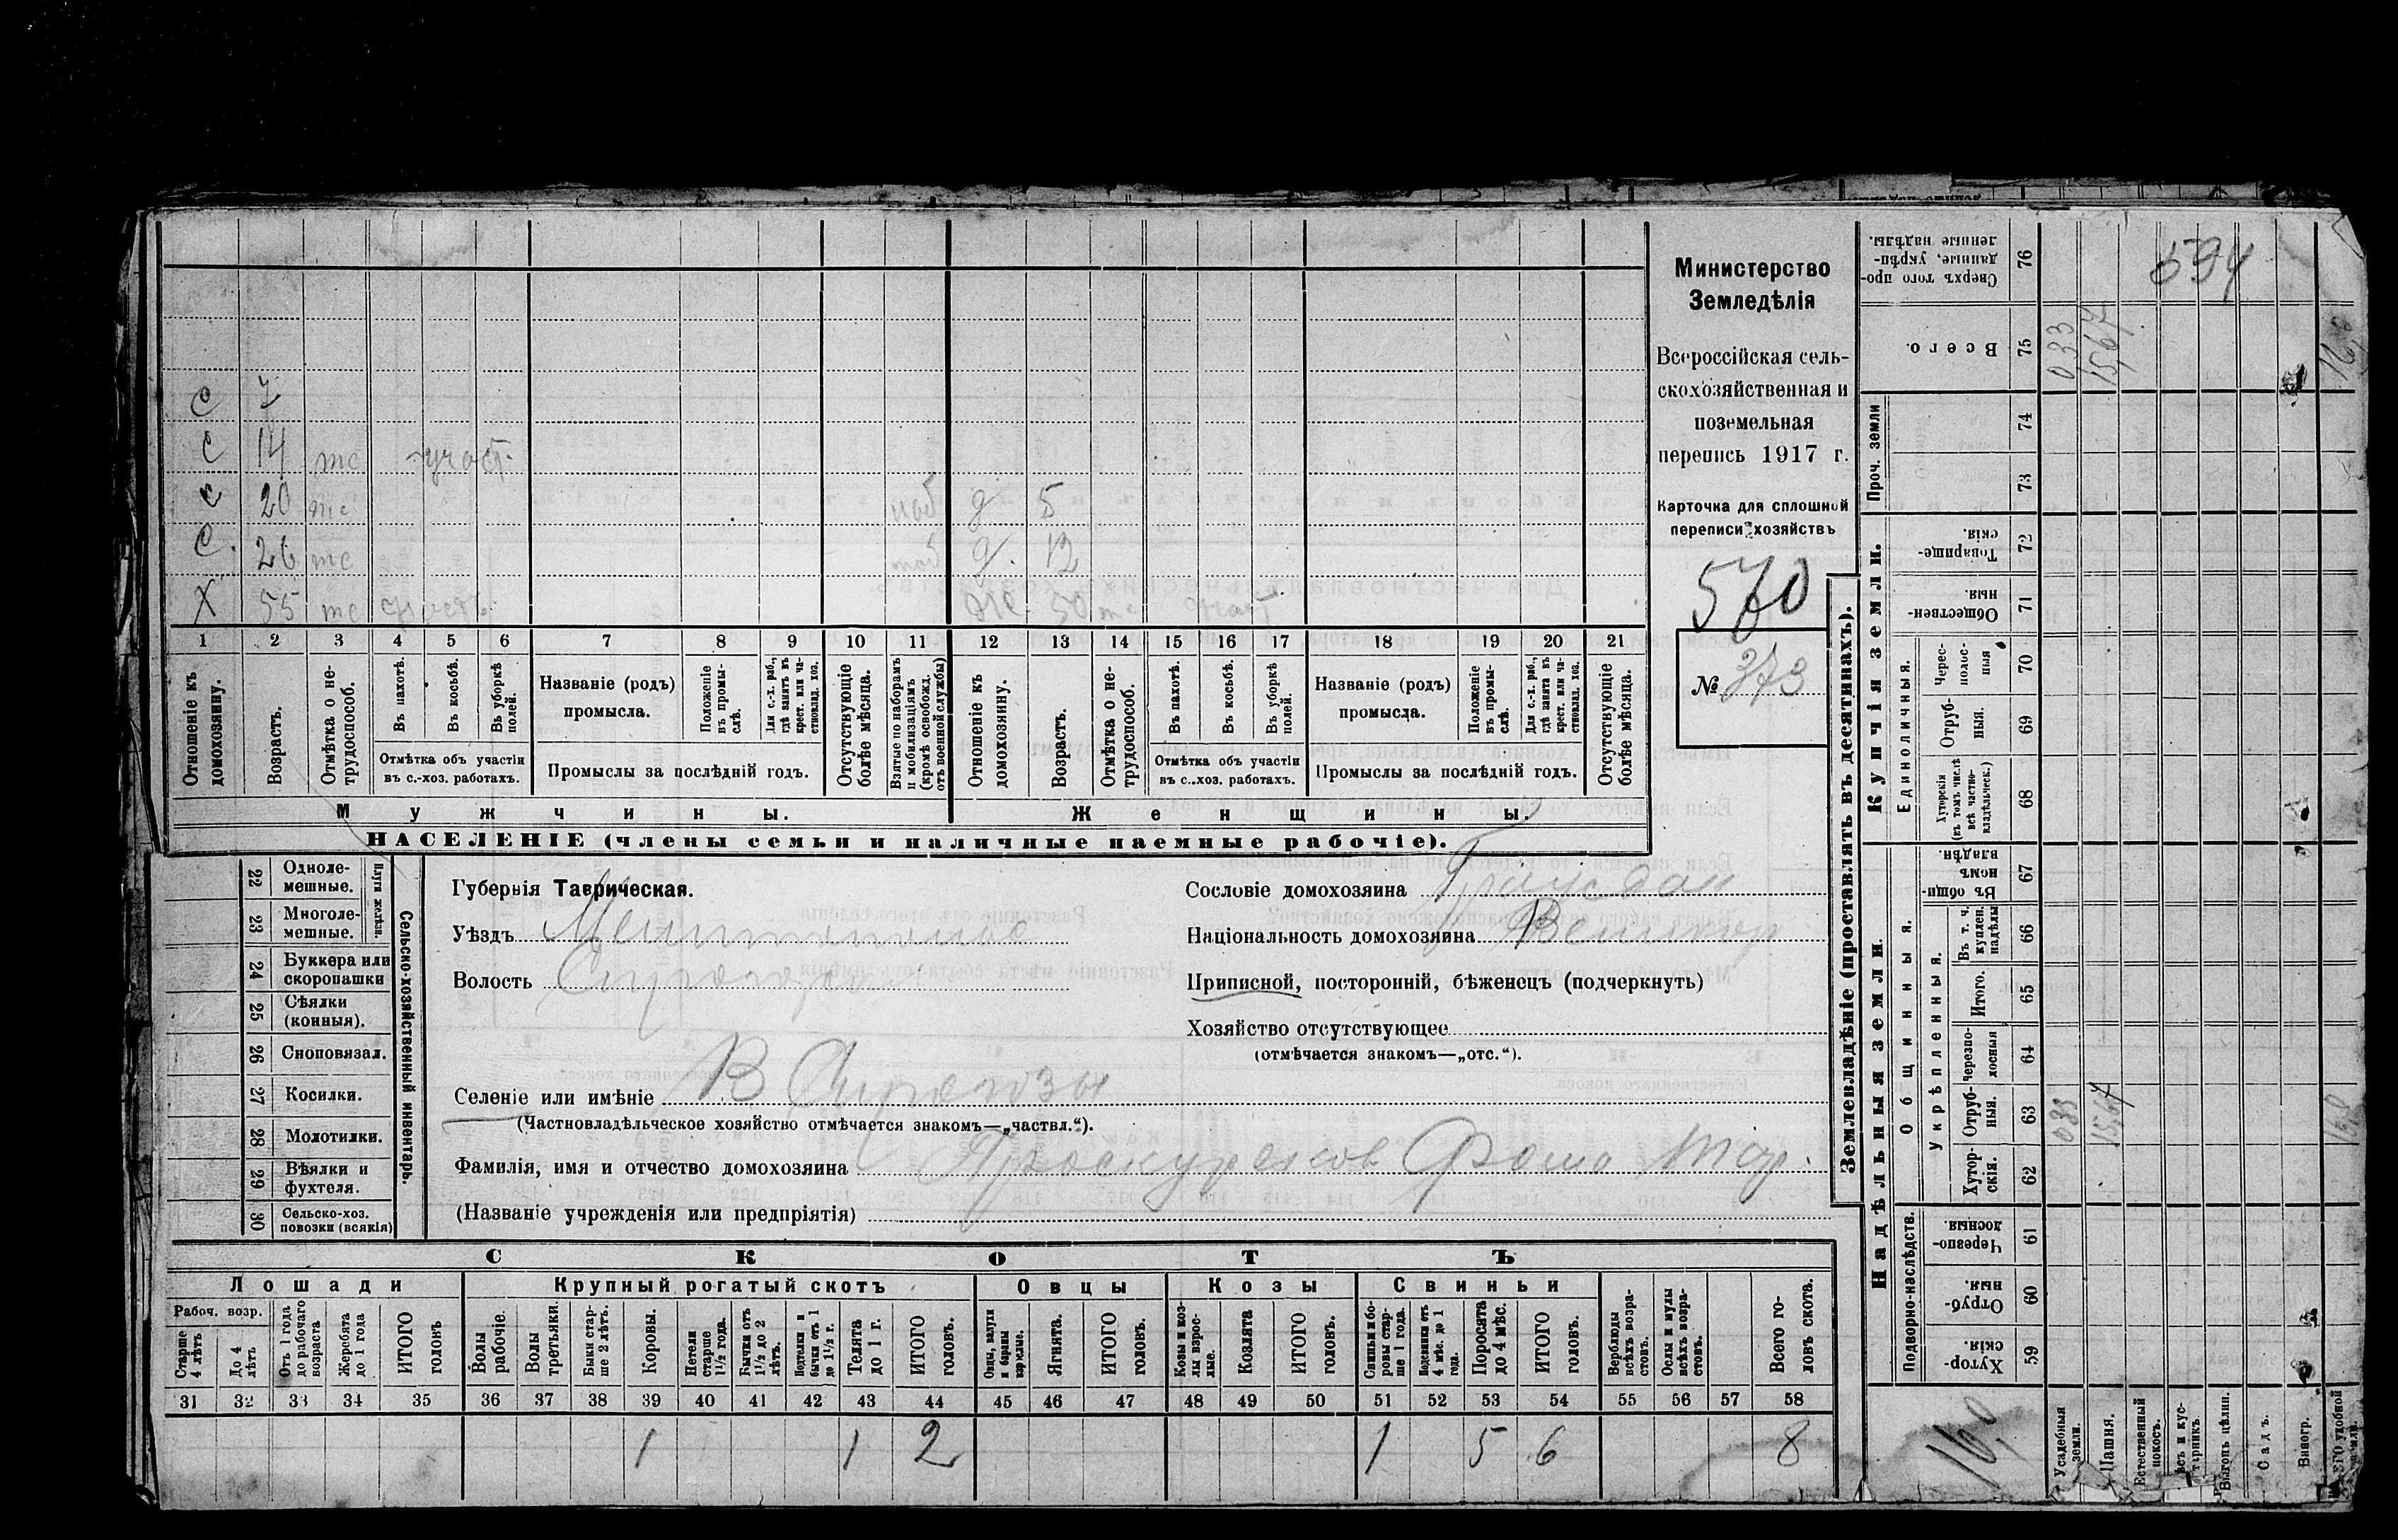 с 7
с 14 тс участ.
с 20 тс моб д 5
с. 26 тс моб д. 12
х 55 тс участ. ж. 50 тс участ
1 2 3 4 5 6 7 8 9 10 11 12 13 14 15 16 17 18 19 20 21
Отношеніе къ домохозяину.
Возрастъ.
Отмѣтка о не-трудоспособ.
Въ пахотѣ.
Въ косьбѣ.
Въ уборкѣ полей.
Отмѣтка объ участіи
въ с.-хоз. работахъ.
Названіе (родъ)
промысла.
Положеніе въ промы-слѣ.
Для с.-х. раб., гдѣ занятъ въ крест. или ча-стновлад. хоз.
Промыслы за послѣдній годъ.
Отсутствующіе болѣе мѣсяца.
Взятые по наборамъ и мобилизаціямъ (кромѣ освобожд. отъ военной службы)
Отношеніе къ домохозяину.
Возрастъ.
Отмѣтка о не-трудоспособ.
Въ пахотѣ.
Въ косьбѣ.
Въ уборкѣ полей.
Отмѣтка объ участіи
въ с..хоз. работахъ.
Названіе (родъ)
промысла.
Положеніе въ промы-слѣ.
Для с.-х. раб., гдѣ занята въ крест. или ча-стновлад. хоз.
Промыслы за послѣдній годъ.
Отсутствующіе болѣе мѣсяца.
Мужчины. Женщины.
НАСЕЛЕНІЕ (члены семьи и наличные наемные рабочіе).
Министерство
Земледѣлія
Всероссійская сель-
скохозяйственная и
поземельная
перепись 1917 г.
Карточка для сплошной
переписи хозяйствъ
570
№ 373
22 Одноле-мешные.
23 Многоле-мешные.
Плуги желѣзн.
24 Буккера или скоропашки
25 Сѣялки (конныя).
26 Сноповязал.
27 Косилки.
28 Молотилки.
29 Вѣялки и фухтеля.
30 Сельско-хоз. повозки (всякія)
Сельско-хозяйственный инвентарь.
Губернія Таврическая.
Уѣздъ
Волость
Селеніе или имѣніе В Сирогозы
(Частновладѣльческое хозяйство отмѣчается знакомъ—„частвл.“).
Фамилія, имя и отчество домохозяина Проскуряков Фома
(Названіе учрежденія или предпріятія)
Сословіе домохозяина Граждан
Національность домохозяина Великор
Приписной, посторонній, бѣженецъ (подчеркнуть)
Хозяйство отсутствующее
(отмѣчается знакомъ—„отс.“).
СКОТЪ
Лошади Крупный рогатый скотъ Овцы Козы Свиньи
Рабоч. возр.
Старше 4 лѣтъ
До 4 лѣтъ
Отъ 1 года до рабочаго возраста
Жеребята до 1 года
ИТОГО головъ
Волы рабочіе.
Волы третьяки.
Быки стар-ше 2 лѣтъ.
Коровы.
Нетели старше 1½ года.
Бычки отъ 1½ до 2 лѣтъ.
Подтелки и бычки отъ 1 до 1½ г.
Телята до 1 г.
ИТОГО головъ.
Овцы, валухи и бараны взрослые.
Ягнята.
ИТОГО головъ.
Козы и коз-лы взрос-лые.
Козлята
ИТОГО головъ.
Свиньи и бо-ровы стар-ше 1 года.
Подсвинки отъ 4 мѣс. до 1 года.
Поросята до 4 мѣс.
ИТОГО головъ.
Верблюды всѣхъ возра-стовъ.
Ослы и мулы всѣхъ возра-стовъ.
Всего го-ловъ скота.
31 32 33 34 35 36 37 38 39 40 41 42 43 44 45 46 47 48 49 50 51 52 53 54 55 56 57 58
1 1 2 1 5 6 8
Землевладѣніе (проставлять въ десятинахъ).
Купчія земли.
Надѣльныя земли.
Сверхъ того про-данные, укрѣп-ленные надѣлы. 76
594
Всего. 75
033
15,67
Проч. земли
74
73
Товарище-скія. 72
Обществен-ныя. 71
Единоличныя.
Черес-полос-ныя 70
Отруб-ныя. 69
Хуторскія (въ томъ числѣ всѣ частно-владѣльческ.) 68
Общинныя.
Въ общин-номъ владѣн. 67
Укрѣпленныя.
Въ т. ч. куплен. надѣлы 66
Итого. 65
Черезпо-лосныя 64
Отруб-ныя. 63
033
15,67
Хутор-скія. 62
Подворно-наслѣдств.
Черезпо-лосныя 61
Отруб-ныя. 60
Хутор-скія. 59
16,0
Усадебныя земли.
Пашня.
Естественный покосъ.
Выгонъ цѣлин.
Садъ.
Виногр.